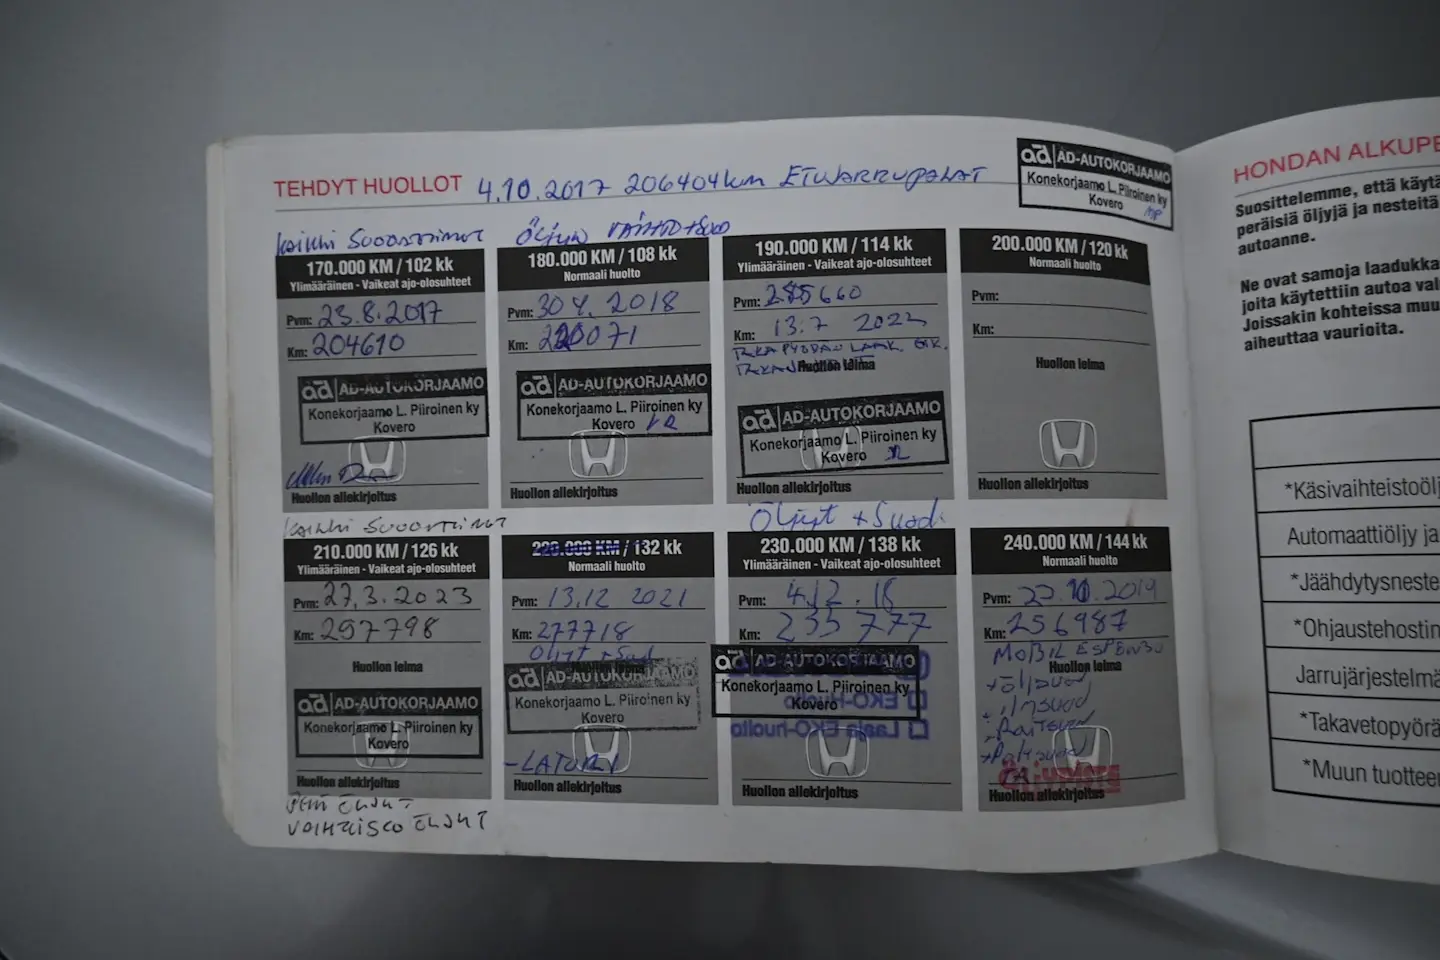 TEHDYT HUOLLOT 4.10.2017 206404km ETUJARRUPALAT
aD AD-AUTOKORJAAMO
Konekorjaamo L. Piiroinen ky
Kovero
KAIKKI SUODATTIMET
170.000 KM / 102 kk
Ylimääräinen - Vaikeat ajo-olosuhteet
Pvm: 23.8.2017
Km: 204610
aD AD-AUTOKORJAAMO
Konekorjaamo L. Piiroinen ky
Kovero
Huollon allekirjoitus
Öljyn VAIHTO + suod
180.000 KM / 108 kk
Normaali huolto
Pvm: 30.4.2018
Km: 220071
aD AD-AUTOKORJAAMO
Konekorjaamo L. Piiroinen ky
Kovero
Huollon allekirjoitus
190.000 KM / 114 kk
Ylimääräinen - Vaikeat ajo-olosuhteet
Pvm: 285660
Km: 13.7 2022
TAKAPYÖRÄN LAAK.
Huollon leima
aD AD-AUTOKORJAAMO
Konekorjaamo L. Piiroinen ky
Kovero
Huollon allekirjoitus
200.000 KM / 120 kk
Normaali huolto
Pvm:
Km:
Huollon leima
Huollon allekirjoitus
KAIKKI SUODATTIMET
210.000 KM / 126 kk
Ylimääräinen - Vaikeat ajo-olosuhteet
Pvm: 27.3.2023
Km: 297798
Huollon leima
aD AD-AUTOKORJAAMO
Konekorjaamo L. Piiroinen ky
Kovero
Huollon allekirjoitus
VAIHTEISTO ÖLJYT
220.000 KM / 132 kk
Normaali huolto
Pvm: 13.12 2021
Km: 277718
Öljyt + Suod
Huollon leima
aD AD-AUTOKORJAAMO
Konekorjaamo L. Piiroinen ky
Kovero
Huollon allekirjoitus
Öljyt + Suod.
230.000 KM / 138 kk
Ylimääräinen - Vaikeat ajo-olosuhteet
Pvm: 4.12.18
Km: 235 777
aD AD-AUTOKORJAAMO
Konekorjaamo L. Piiroinen ky
Kovero
EKO-Huolto
Laaja EKO-huolto
Huollon allekirjoitus
240.000 KM / 144 kk
Normaali huolto
Pvm: 22.10.2019
Km: 256987
MOBIL ESP
Huollon leima
+ öljysuod
+ ilmsuod
+ Raitsuod
Huollon allekirjoitus
HONDAN ALKUPE
Suosittelemme, että käytä
peräisiä öljyjä ja nesteitä
autoanne.
Ne ovat samoja laadukka
joita käytettiin autoa val
Joissakin kohteissa muu
aiheuttaa vaurioita.
*Käsivaihteistoölj
Automaattiöljy ja
*Jäähdytysneste
*Ohjaustehostin
Jarrujärjestelmä
*Takavetopyörä
*Muun tuotteen